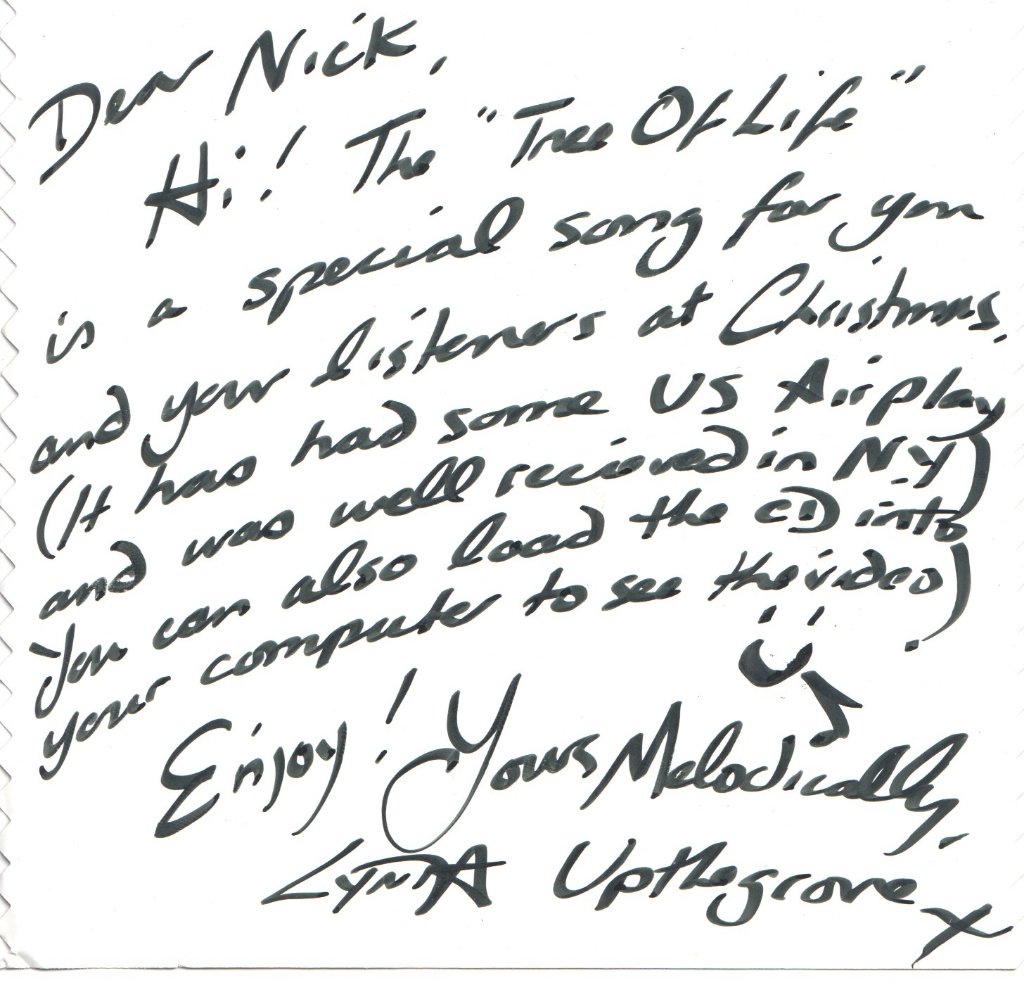 Dear Nick,
Hi! The "Tree Of Life"
is a special song for you
and your listeners at Christmas.
(It has had some US Airplay
and was well recieved in NY)
You can also load the CD into
your computer to see the video).
Enjoy! Yours Melodically,
LYNDA Upthegrove x